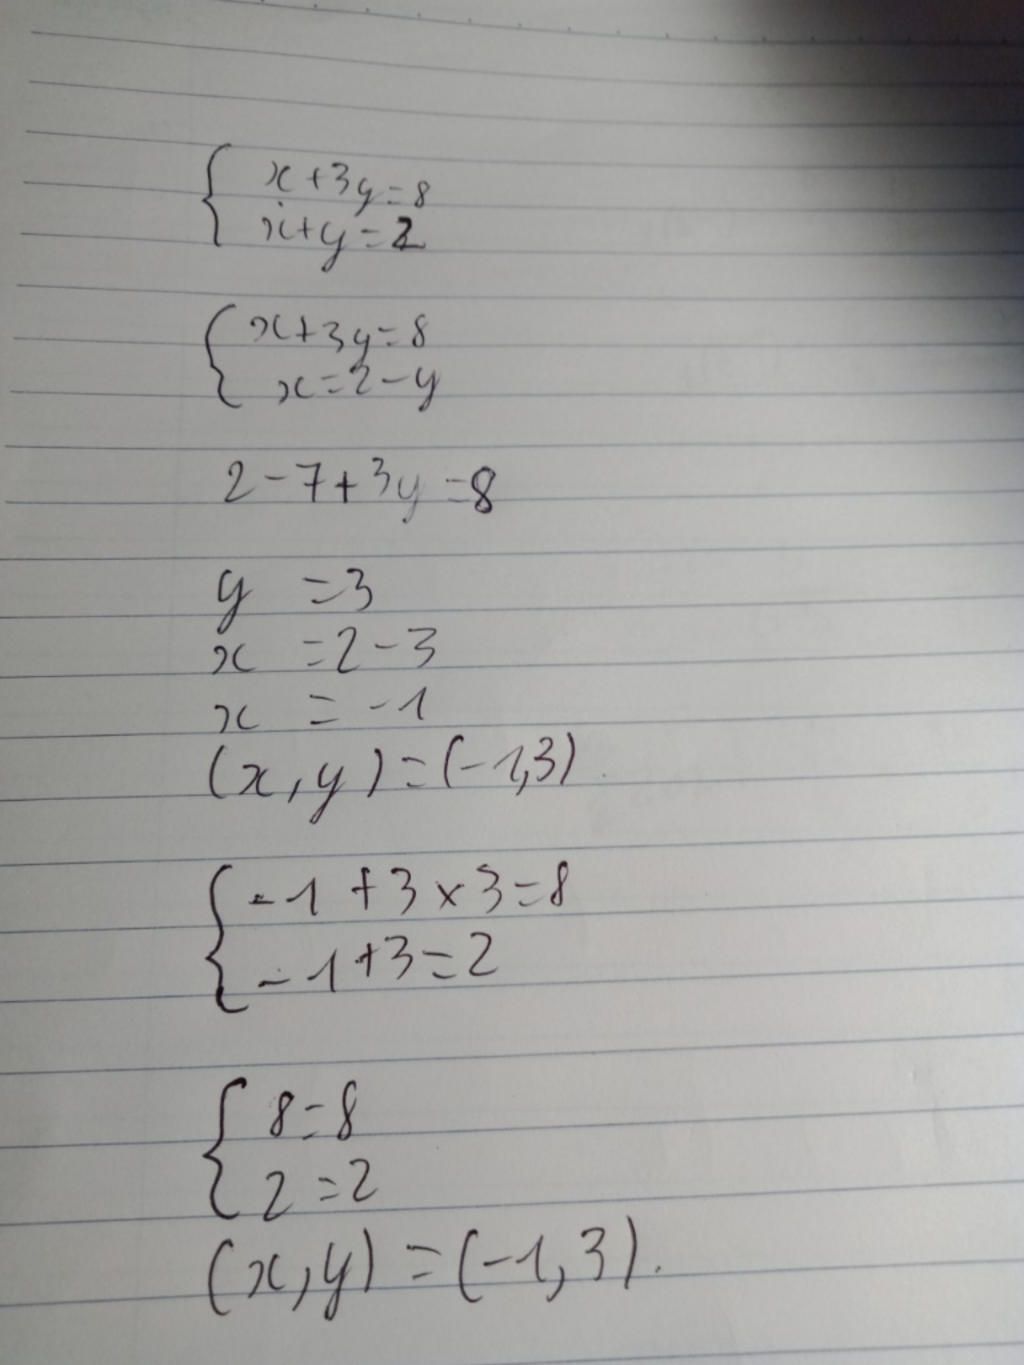 x+3y=8
x+y=2
x+3y=8
x=2-y
2-7+3y=8
y =3
x =2-3
x = -1
(x,y)=(-1,3)
-1+3×3=8
-1+3=2
8=8
2=2
(x,y)=(-1,3).